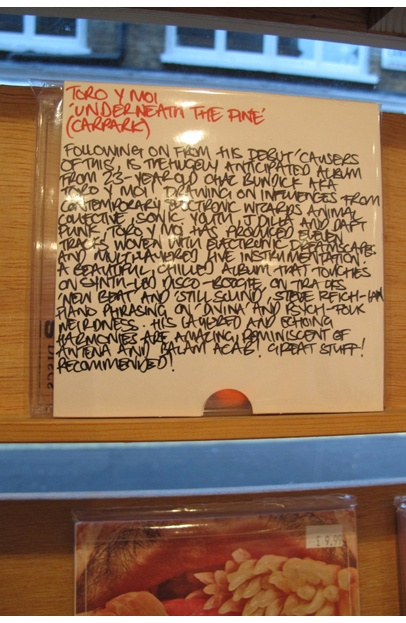 TORO Y MOI
'UNDERNEATH THE PINE'
(CARPARK)
FOLLOWING ON FROM HIS DEBUT 'CAUSERS
OF THIS, IS THE HUGELY ANTICIPATED ALBUM
FROM 23-YEAR OLD CHAZ BUNDICK AKA
TORO Y MOI! DRAWING ON INFLUENCES FROM
CONTEMPORARY ELECTRONIC WIZARDS ANIMAL
COLLECTIVE, SONIC YOUTH, J DILLA AND DAFT
PUNK, TORO Y MOI HAS PRODUCED ELEVEN
TRACKS WOVEN WITH ELECTRONIC DREAMSCAPES
AND MULTI-LAYERED LIVE INSTRUMENTATION.
A BEAUTIFUL, CHILLED ALBUM THAT TOUCHES
ON SYNTH-LED DISCO-BOOGIE ON TRACKS
'NEW BEAT' AND 'STILL SOUND', STEVE REICH-IAN
PIANO PHRASING ON 'DIVINA' AND PSYCH-FOLK
WEIRDNESS. HIS LAYERED AND ECHOING
HARMONIES ARE AMAZING, REMINISCENT OF
ANTENA AND BALAM ACAB. GREAT STUFF!
RECOMMENDED!
£9.99